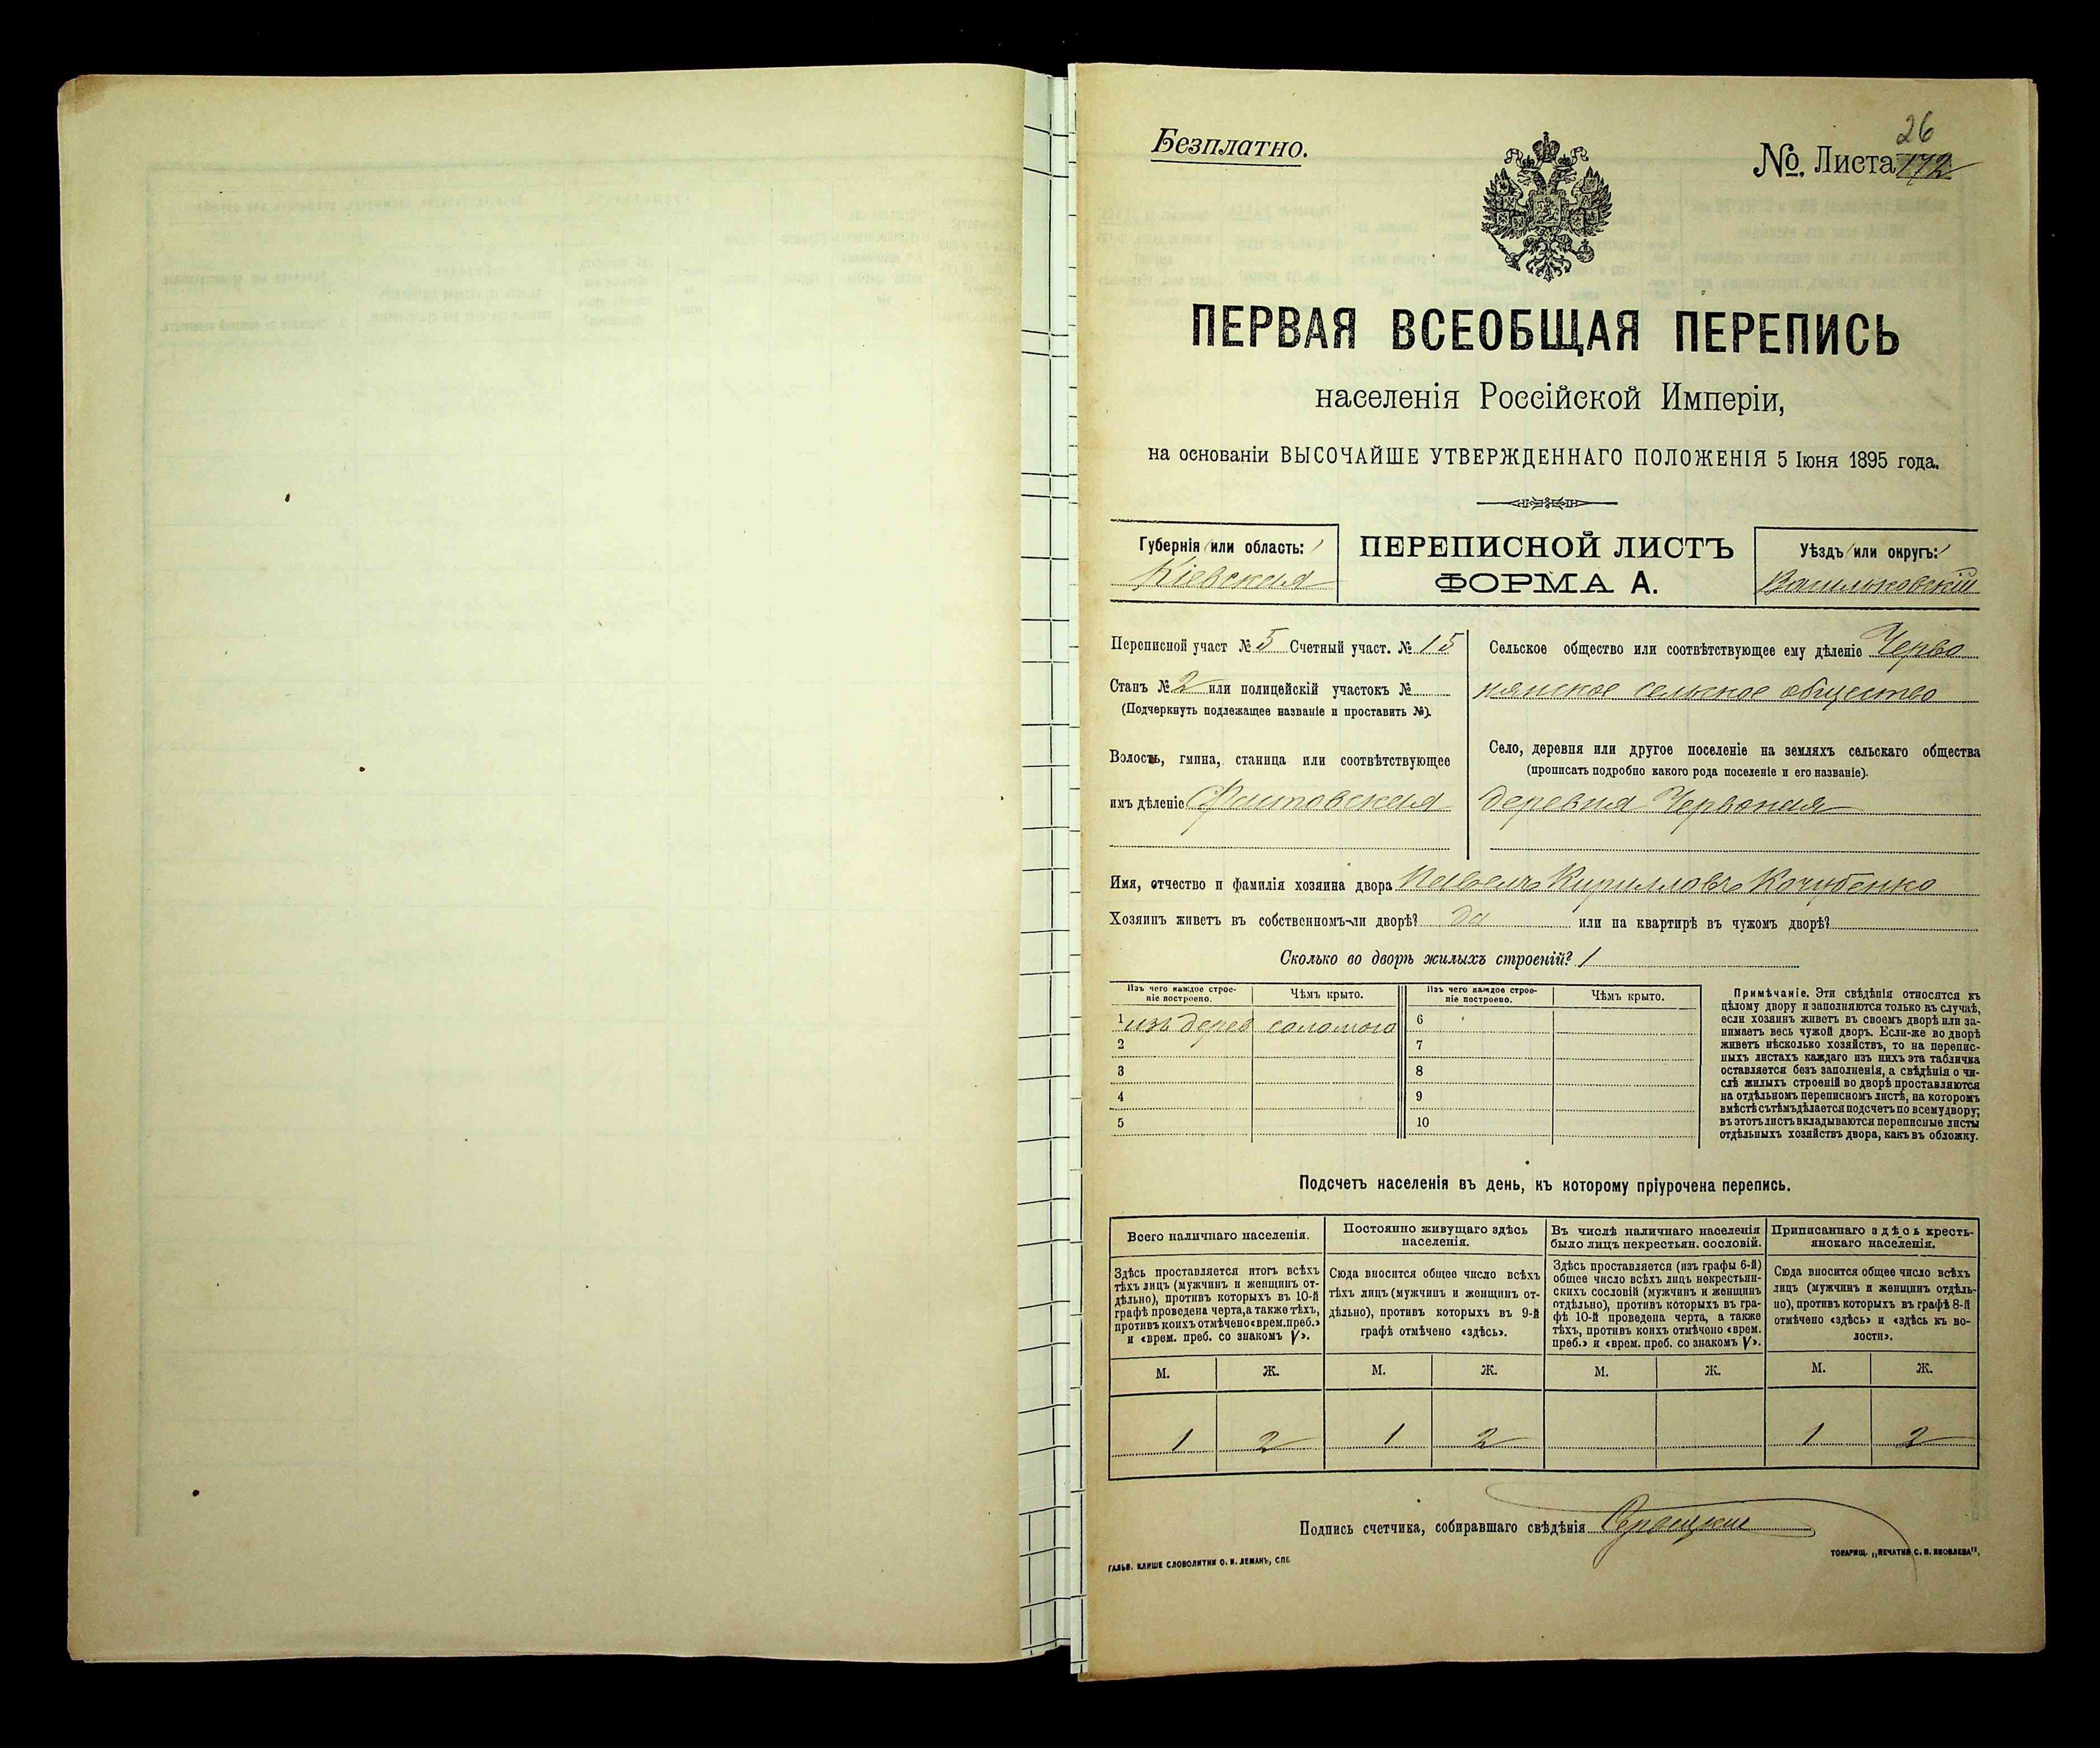 Безплатно.
26
№. Листа 172
ПЕРВАЯ ВСЕОБЩАЯ ПЕРЕПИСЬ
населенія Россійской Имперіи,
на основаніи ВЫСОЧАЙШЕ УТВЕРЖДЕННАГО ПОЛОЖЕНІЯ 5 Іюня 1895 года.
Губернія или область:
Кіевская
ПЕРЕПИСНОЙ ЛИСТЪ
ФОРМА А.
Уѣздъ или округъ:
Васильковскій
Переписной участ № 5 Счетный участ. № 15
Станъ № 2 или полицейскій участокъ №
(Подчеркнуть подлежащее названіе и проставить №).
Волость, гмина, станица или соотвѣтствующее
имъ дѣленіе Фастовская
Сельское общество или соотвѣтствующее ему дѣленіе Черво
нянское сельское общество
Село, деревня или другое поселеніе на земляхъ сельскаго общества
(прописать подробно какого рода поселеніе и его названіе).
деревня Червоная
Имя, отчество и фамилія хозяина двора Павелъ Кирилловъ Кочубенко
Хозяинъ живетъ въ собственномъ-ли дворѣ? да или на квартирѣ въ чужомъ дворѣ?
Сколько во дворѣ жилыхъ строеній? 1
Изъ чего каждое строе-
ніе построено.
Чѣмъ крыто.
Изъ чего каждое строе-
ніе построено.
Чѣмъ крыто.
1 изъ дерев соломою 6
2 7
3 8
4 9
5 10
Примѣчаніе. Эти свѣдѣнія относятся къ
цѣлому двору и заполняются только въ случаѣ,
если хозяинъ живетъ въ своемъ дворѣ или за-
нимаетъ весь чужой дворъ. Если-же во дворѣ
живетъ нѣсколько хозяйствъ, то на перепис-
ныхъ листахъ каждаго изъ нихъ эта табличка
оставляется безъ заполненія, а свѣдѣнія о чи-
слѣ жилыхъ строеній во дворѣ проставляются
на отдѣльномъ переписномъ листѣ, на которомъ
вмѣстѣ съ тѣмъ дѣлается подсчетъ по всему двору;
въ этотъ листъ вкладываются переписные листы
отдѣльныхъ хозяйствъ двора, какъ въ обложку.
Подсчетъ населенія въ день, къ которому пріурочена перепись.
Всего наличнаго населенія.
Здѣсь проставляется итогъ всѣхъ
тѣхъ лицъ (мужчинъ и женщинъ от-
дѣльно), противъ которыхъ въ 10-й
графѣ проведена черта, а также тѣхъ,
противъ коихъ отмѣчено «врем. преб.»
и «врем. преб. со знакомъ V».
Постоянно живущаго здѣсь
населенія.
Сюда вносится общее число всѣхъ
тѣхъ лицъ (мужчинъ и женщинъ от-
дѣльно), противъ которыхъ въ 9-й
графѣ отмѣчено «здѣсь».
Въ числѣ наличнаго населенія
было лицъ некрестьян. сословій.
Здѣсь проставляется (изъ графы 6-й)
общее число всѣхъ лицъ некрестьян-
скихъ сословій (мужчинъ и женщинъ
отдѣльно), противъ которыхъ въ гра-
фѣ 10-й проведена черта, а также
тѣхъ, противъ коихъ отмѣчено «врем.
преб.» и «врем. преб. со знакомъ V».
Приписаннаго здѣсь кресть-
янскаго населенія.
Сюда вносится общее число всѣхъ
лицъ (мужчинъ и женщинъ отдѣль-
но), противъ которыхъ въ графѣ 8-й
отмѣчено «здѣсь» и «здѣсь къ во-
лости».
М. Ж. М. Ж. М. Ж. М. Ж.
1 2 1 2 1 2
Подпись счетчика, собиравшаго свѣдѣнія
ГАЛЬВ. КЛИШЕ СЛОВОЛИТНИ О. И. ЛЕМАНЪ, СПБ.
ТОВАРИЩ. „ПЕЧАТНЯ С. П. ЯКОВЛЕВА".